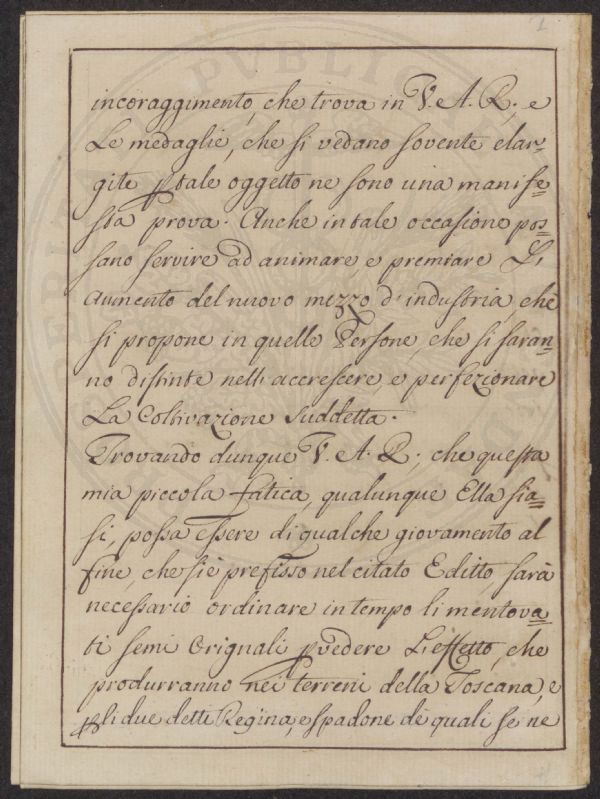 incoraggimento, che trova in V. A. R. e
Le medaglie, che si vedano sovente elar=
gite p tale oggetto ne sono una manife=
sta prova. Anche in tale occasione pos=
sano servire ad animare, e premiare L'
Aumento del nuovo mezzo d'industria, che
si propone in quelle Persone, che si faran=
no distinte nell' accrescere, e perfezionare
La Coltivazione suddetta.
Trovando dunque V. A. R., che questa
mia piccola fatica, qualunque Ella sia=
si, possa essere di qualche giovamento al
fine, che si è prefisso nel citato Editto, sarà
necessario ordinare in tempo li mentova=
ti semi Orignali p vedere L'effetto, che
produrranno nei terreni della Toscana, e
p li due detti Regina, e spadone de quali se ne